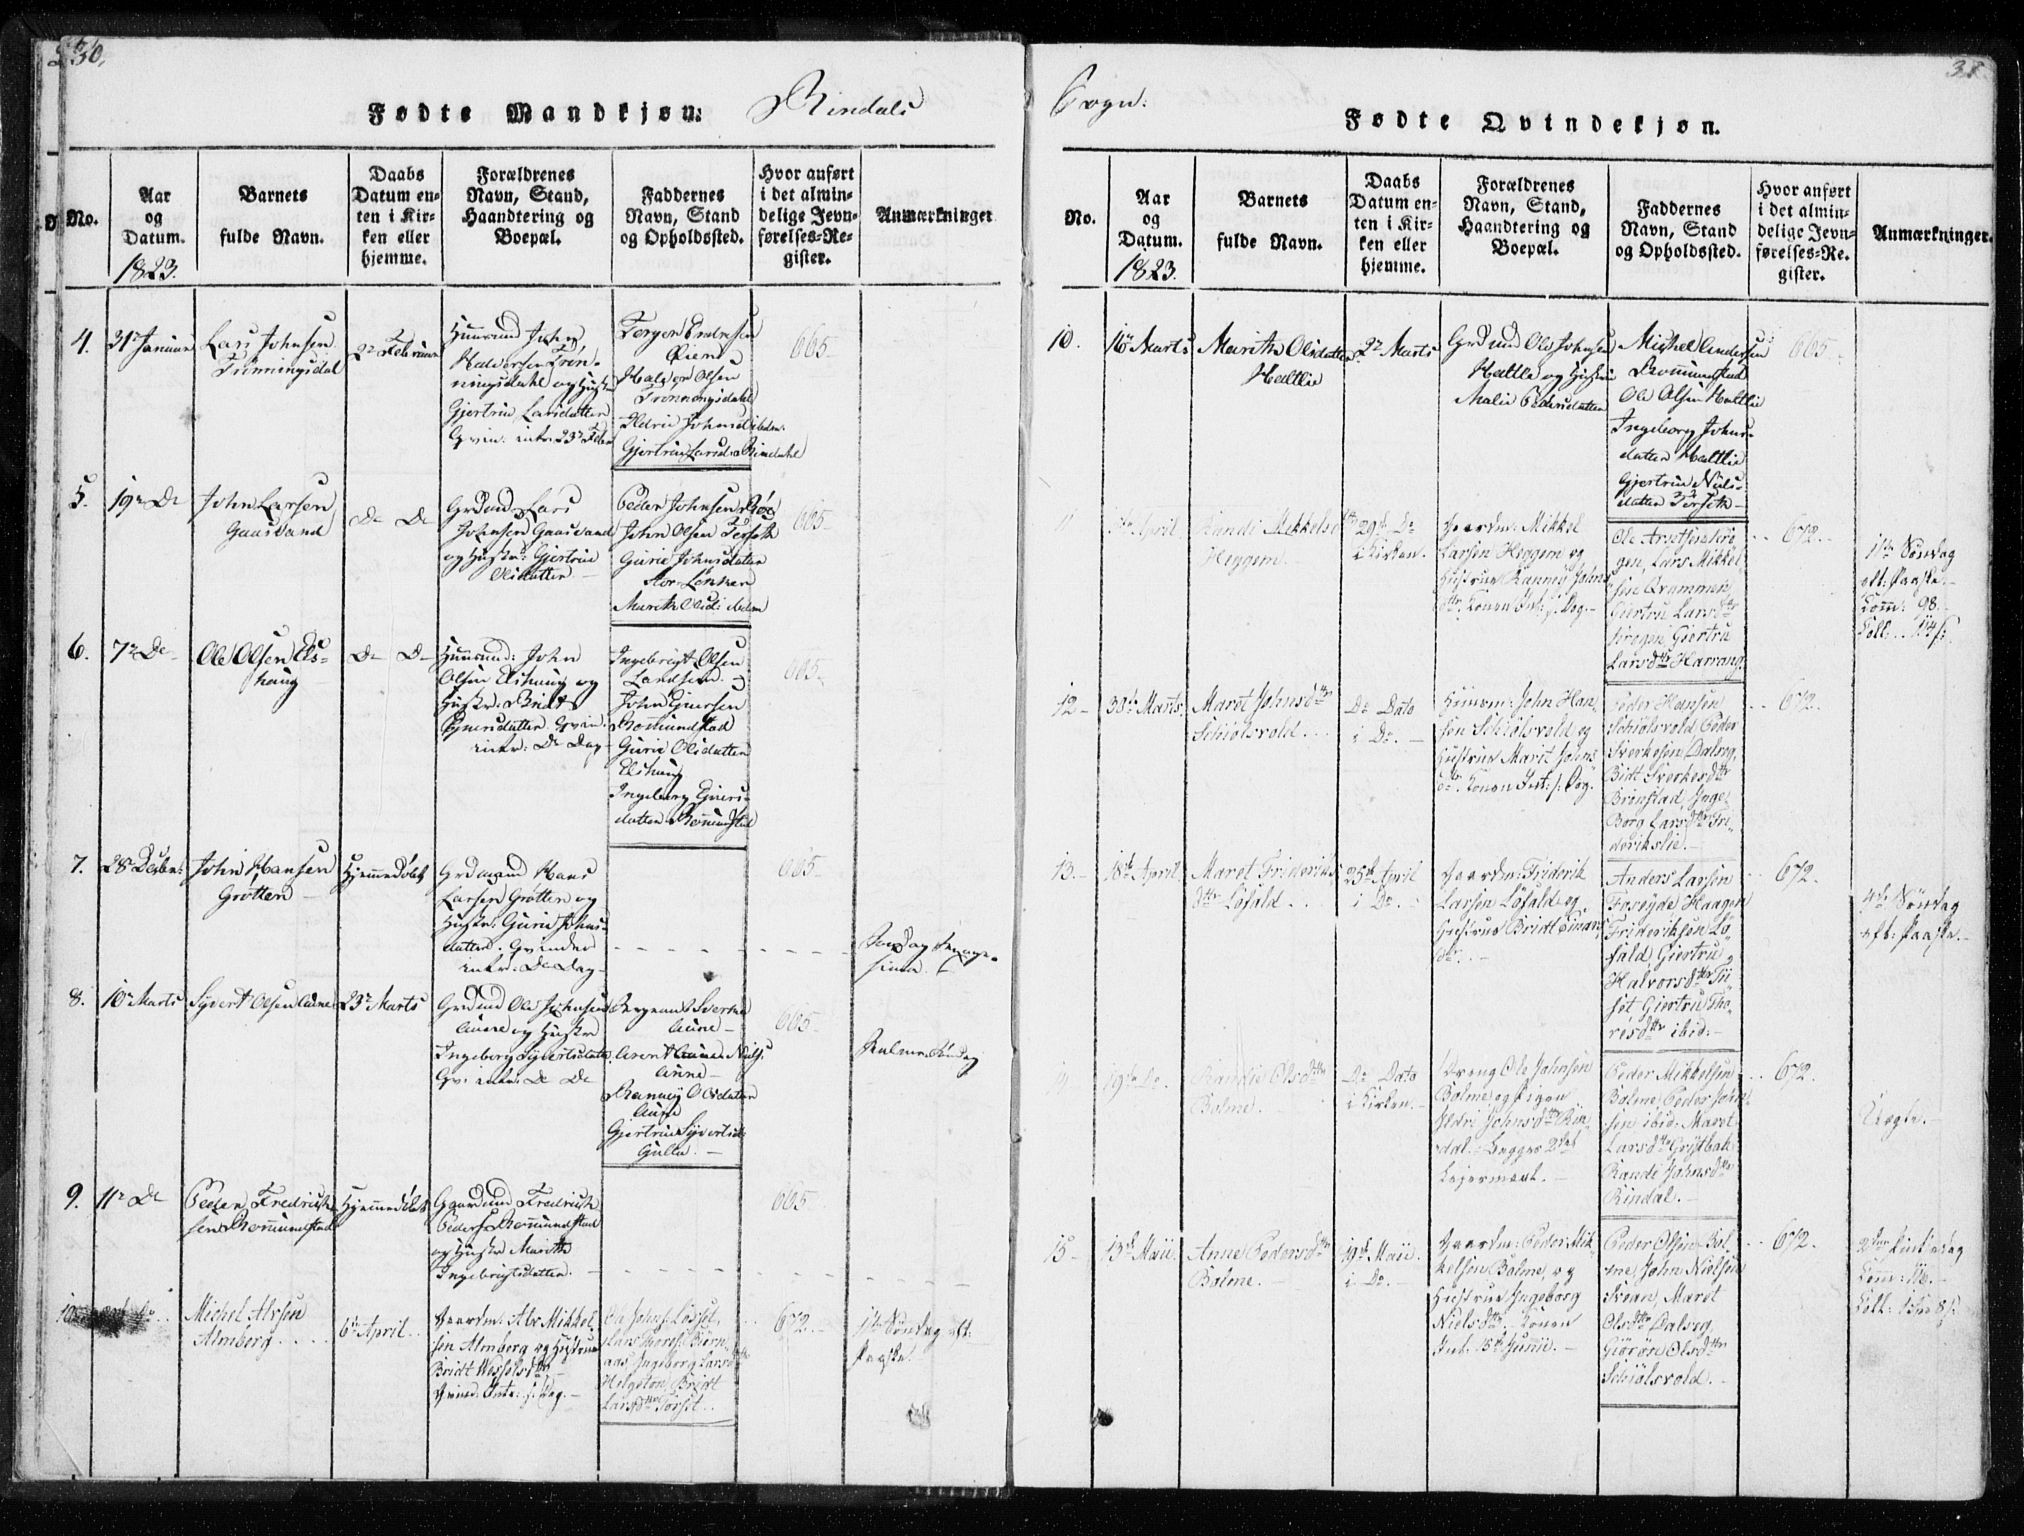 230.
Fødte Mandkjøn: Rindals
No.
Aar
og
Datum.
1823.
Barnets
fulde Navn.
Daabs
Datum en-
ten i Kir-
ken eller
hjemme.
Forældrenes
Navn, Stand,
Haandtering og
Boepæl.
Faddernes
Navn, Stand
og Opholdssted.
Hvor anført
i det almin-
delige Jevn-
førelses-Re-
gister.
Anmærkninger
4.
31te Januar
Lars Johnsen
Trønningsdal
2de Februar
Huusmd John
Halvorsen Trøn-
ningsdahl og Hustr
Gjertrue Larsdatter
Qvin: intr. 23de Febr
Halvor Olsen
Trønningsdahl
Ildrie Johnsd ibidem.
Gjertrue Larsd. Rindahl
665.
5.
19de Do
John Larsen
Gaasvand
Do Do
Grdmd Lars
Johnsen Gaasvand
og Hustr: Gjertrue
Olsdatter
Peder Johnsen Bøe
John Olsen Torseth
Gurie Johnsdatter
Stor-Lønset
Marith Olsd: ibidem
665-
6.
7de Do
Ole Olsen Els-
haug
Do Do
Huusmd: John
Olsen Elshaug og
Hustr: Bridt
Ejnersdatter Qvin:
intr: Do Dag
Ingebrigt Olsen
Landsem
John Ejnersen
Romundstad
Gurie Olsdatter
Elshaug
Ingeborg Ejners-
datter Romundstad
665-
7.
28de Decbr:
John Hansen
Grøtten
Hjemmedøbt
Grdmand Hans
Larsen Grøtten og
Hustr: Gurie Johns-
datter. Qvinden
intr: Do Dag
665
8.
10de Marts
Syvert Olsen Aune
23de Marts
Grdmd Ole Johnsen
Aune og Hustr
Ingeborg Syvertsdatt.
Qv: intr: Do Do
Aune
Arent Nielss:
Aune
Rannøy Olsdatter
Aune
Gjertrue Syvertsd:
Gulla.
665-
Palme Søndag
9.
11te Do
Peder Fredrich-
sen Romundstad
Hjemmedøbt
Gaardmd Fredrich
Peders: Romundstad
og Hustr Marithe
Ingebrigtsdatter.
665-
10.
Michel Alvsen
Almberg
6te April
Gaardm: Alv Mikkel-
sen Almberg og Hustrue
Bridt Wessels dtr
Qvind: Intr: s: Dag.
Ole Johns: Løsset,
Lars Tores: Biørn-
aas, Ingeborg Larsdtr
Helgeton, Bridt
Larsdtr Torset.
672.
1ste Søndag eft:
Paaske.
Sogn:
31
Fødte Qvindekjøn.
No.
Aar
og
Datum.
1823.
Barnets
fulde Navn.
Daabs
Datum en-
ten i Kir-
ken eller
hjemme.
Forældrenes
Navn, Stand,
Haandtering og
Boepæl.
Faddernes
Navn, Stand
og Opholdssted.
Hvor anført
i det almin-
delige Jevn-
førelses-Re-
gister.
Anmærkninger.
10.
16de Marts
Marith Olsdatter
Haltlie
27de Marts
Grdmd Ole Johnsen
Haltlie og Hustrue
Malie Pedersdatter
Michel Andersen
Romundstad
Ole Olsen Haltlie
Ingeborg Johns-
datter Haltlie
Gjertrue Niels-
datter Torseth
665-
11
April
Randi Mikkelsdtr
Heggem
29de Do
i Kirken.
Gaardm: Mikkel
Larsen Heggem og
Hustrue Rannøy Johns
dtr. Konen Int: s: Dag.
Ole
gen, Lars Mikkel-
sen Brummen,
Giertru Larsdtr
Krogen, Giertru
Larsdtr Harrang.
672.
1ste Søndag
eft: Paaske.
Com: 98.
12
30te Marts.
Maret Johnsdtr
Schiølsvold
Do Dato
i Do.
Huusm: John Han-
sen Schiølsvold og
Hustrue Marit Johns
dtr. Konen Int: s: Dag.
Peder Hansen
Schiølsvold, Peder
Sverkesen Dalseg,
Bridt Sverkesdtr
Brønstad, Inge-
borg Larsdtr Fri-
derikslie.
672.
13.
18de April
Maret Frideriks
dtr Løfald
25de April
i Do.
Gaardm: Friderik
Larsen Løfald og
Hustrue Bridt Einars
dtr.
Anders Larsen
Foseyde, Haagen
Frideriksen Lø-
fald, Giertru
Halvorsdtr Tii-
set, Giertru Tho-
resdtr ibid:
672.
4de Søndag
eft: Paaske.
19de Do.
Randie Olsdtr
Bolme.
Do Dato
i Kirken.
Dreng Ole Johnsen
Bolme og Pigen
Ildri Johnsdtr Rin-
dal. Begges 2det
Leiermaal.
Peder Mikkelsen
Bolme, Peder John-
sen ibid: Maret
Larsdtr Grytbak
Randi Johnsdtr
Rindal.
672.
Uægte.
15
13de Maii.
Anne Pedersdtr
Bolme.
19de Maii.
i Do.
Gaardm: Peder Mik-
kelsen Bolme, og
Hustrue Ingeborg
Nielsdtr. Konen
Int: 15de Junii.
Peder Olsen Bol-
me, John Nielsen
Skean, Maret
Olsdtr Dalseg,
Giørøn Olsdtr
Schiølsvold.
672.
2den Pintsedag